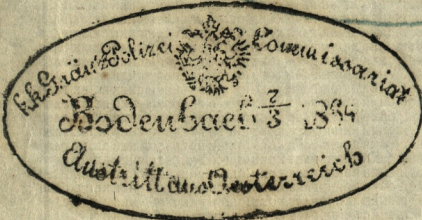 k.k. Gränz Polizei Commissariat
Bodenbach 2/3 1864
Austritt aus Oesterreich